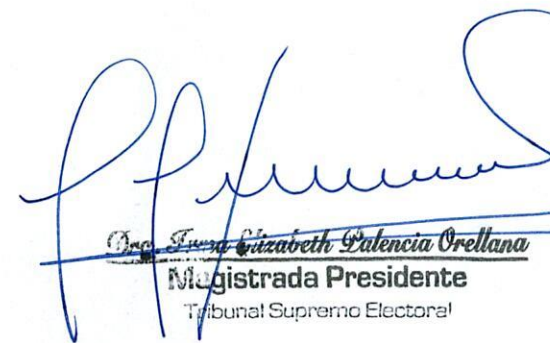 Elizabeth Palencia Orellana
Magistrada Presidente
Tribunal Supremo Electoral